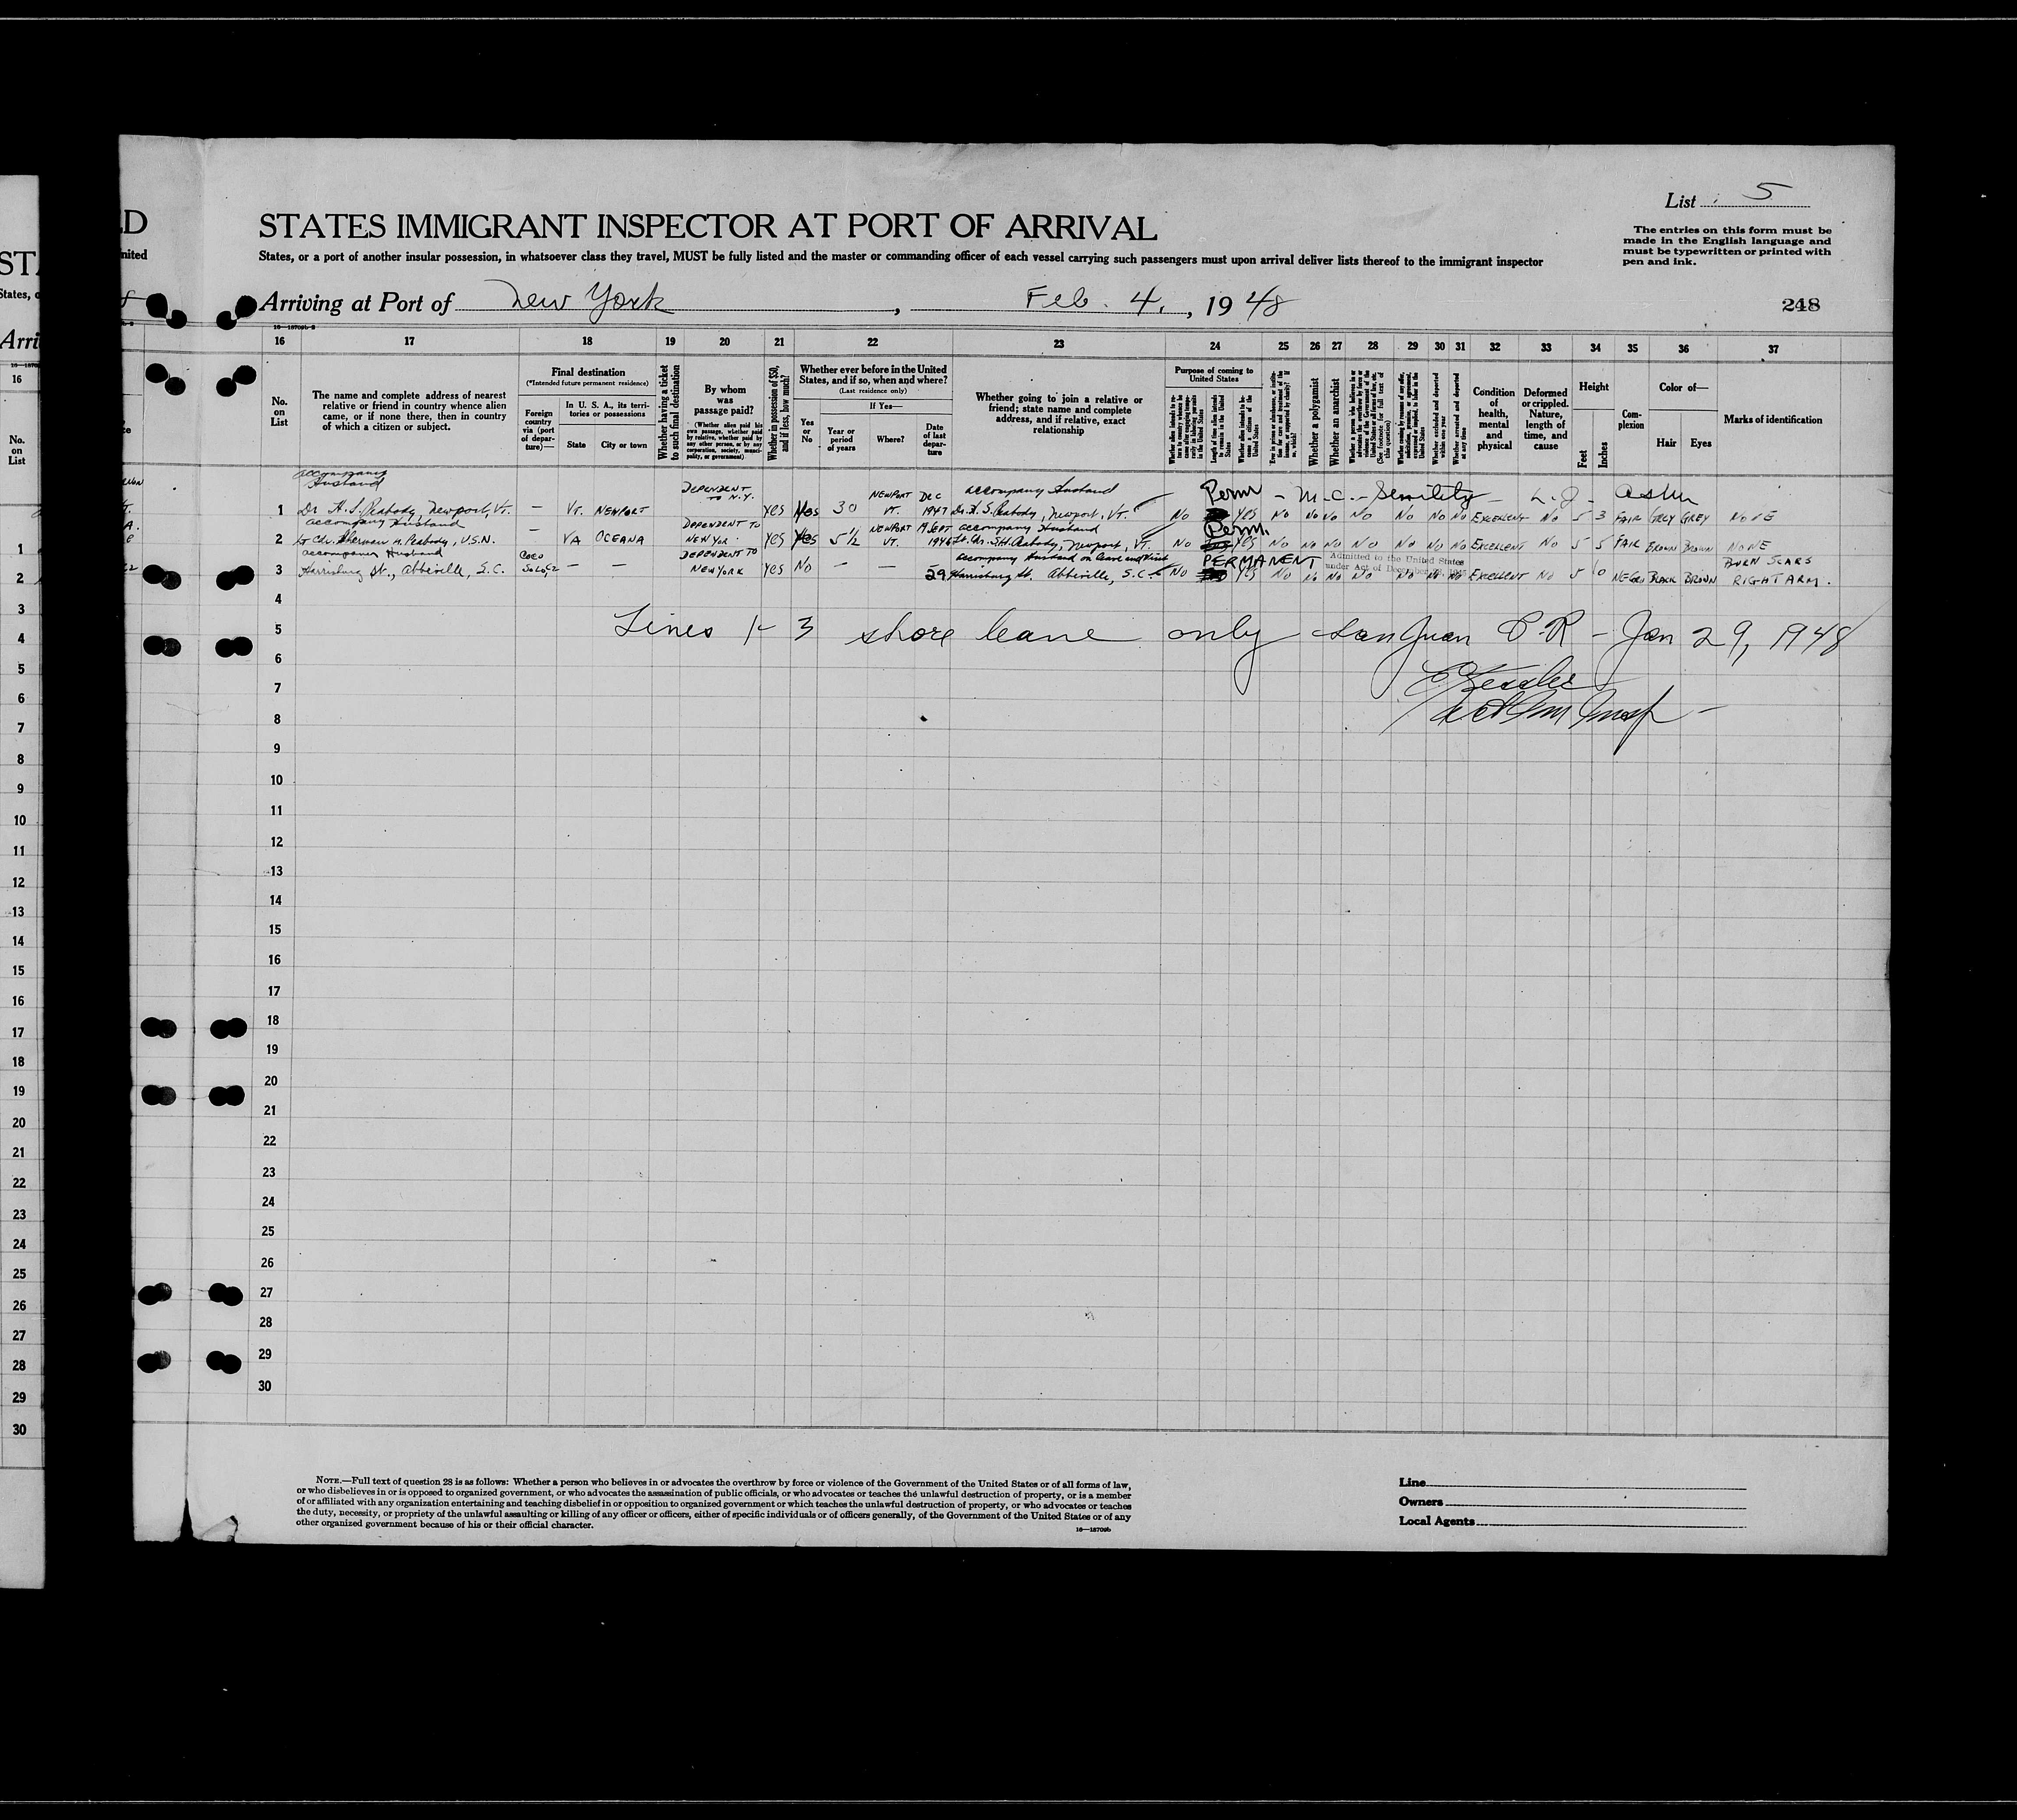 List 5
STATES IMMIGRANT INSPECTOR AT PORT OF ARRIVAL
The entries on this form must be
made in the English language and
must be typewritten or printed with
pen and ink.
States, or a port of another insular possession, in whatsoever class they travel, MUST be fully listed and the master or commanding officer of each vessel carrying such passengers must upon arrival deliver lists thereof to the immigrant inspector
Arriving at Port of New York, Feb. 4, 1948
248
16 17 18 19 20 21 22 23 24 25 26 27 28 29 30 31 32 33 34 35 36 37
No. on List
The name and complete address of nearest
relative or friend in country whence alien
came, or if none there, then in country
of which a citizen or subject.
Final destination
(*Intended future permanent residence)
Foreign country via (port of departure)—
In U. S. A., its territories or possessions
State
City or town
Whether having a ticket to such final destination
By whom was passage paid?
(Whether alien paid his own passage, whether paid by relative, whether paid by any other person, or by any corporation, society, municipality, or government)
Whether in possession of $50, and if less, how much?
Whether ever before in the United
States, and if so, when and where?
(Last residence only)
Yes or No
If Yes—
Year or period of years
Where?
Date of last departure
Whether going to join a relative or
friend; state name and complete
address, and if relative, exact
relationship
Purpose of coming to United States
Length of time alien intends to remain in the United States
Whether alien intends to become a citizen of the United States
Whether a polygamist
Whether an anarchist
Whether excluded and deported within one year
Whether arrested and deported at any time
Condition of health, mental and physical
Deformed or crippled. Nature, length of time, and cause
Height
Feet
Inches
Complexion
Color of—
Hair
Eyes
Marks of identification
accompany Husband
DEPENDENT TO N.Y.
accompany Husband
Perm - M.C. - Senility - L.J.
1 Dr. H. S. Peabody, Newport, Vt. — VT. NEWPORT YES Yes 30 NEWPORT VT. DEC 1947 Dr. H. S. Peabody, Newport, Vt. No YES No No No No No No No EXCELLENT No 5 3 FAIR GREY GREY NONE
accompany Husband DEPENDENT TO accompany Husband Perm.
2 Lt Cdr. Sherman H. Peabody, U.S.N. — VA OCEANA NEW YOR. YES Yes 5 1/2 NEWPORT VT. SEPT 1946 Lt. Cdr. S.H. Peabody, Newport, VT. No YES No No No No No No No EXCELLENT No 5 5 FAIR BROWN BROWN NONE
accompany Husband DEPENDENT TO accompany Husband on leave and visit PERMANENT
Admitted to the United States
under Act of December 28, 1945
BURN SCARS
3 Harrisburg St., Abbeville, S.C. COCO SOLO, CZ — — NEW YORK YES No — — 29 Harrisburg St. Abbeville, S.C. No YES No No No No No No No EXCELLENT No 5 0 NEGRO BLACK BROWN RIGHT ARM.
4
5 Lines 1-3 shore leave only San Juan P-R - Jan 29, 1948
6
7
8
9
10
11
12
13
14
15
16
17
18
19
20
21
22
23
24
25
26
27
28
29
30
NOTE.—Full text of question 28 is as follows: Whether a person who believes in or advocates the overthrow by force or violence of the Government of the United States or of all forms of law,
or who disbelieves in or is opposed to organized government, or who advocates the assassination of public officials, or who advocates or teaches the unlawful destruction of property, or is a member
of or affiliated with any organization entertaining and teaching disbelief in or opposition to organized government or which teaches the unlawful destruction of property, or who advocates or teaches
the duty, necessity, or propriety of the unlawful assaulting or killing of any officer or officers, either of specific individuals or of officers generally, of the Government of the United States or of any
other organized government because of his or their official character.
16—18709b
Line
Owners
Local Agents